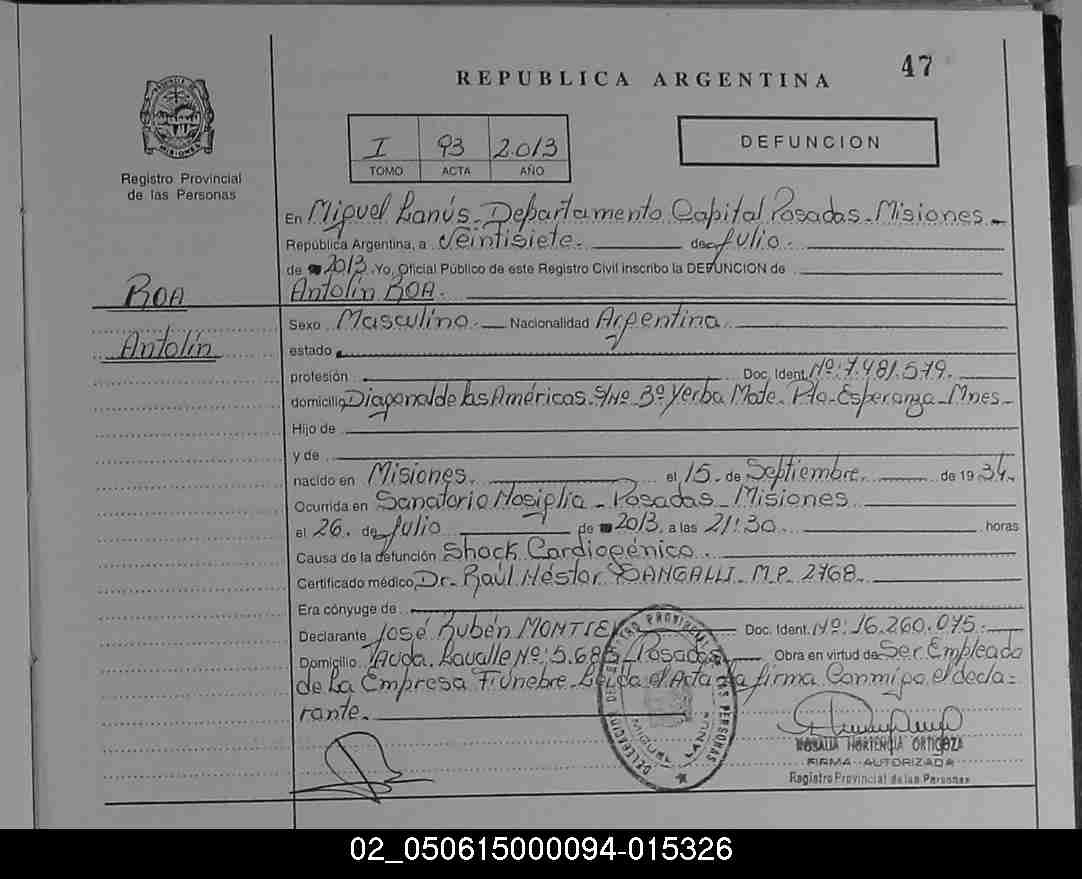 47
REPUBLICA ARGENTINA
I 93 2.013
TOMO ACTA AÑO
DEFUNCION
MISIONES
Registro Provincial
de las Personas
En Miguel Lanús_Departamento Capital Posadas_Misiones_
República Argentina, a Veintisiete. de Julio.
de 2013. Yo, Oficial Público de este Registro Civil inscribo la DEFUNCION de
Antolín ROA.
ROA
Antolín
Sexo Masculino. Nacionalidad Argentina
estado
profesión Doc. Ident. Nº: 7.981.579.
domicilio Diagonal de las Américas. S/Nº Bº Yerba Mate. Pto. Esperanza_Mnes_
Hijo de
y de
nacido en Misiones. el 15. de Septiembre. de 19 34.
Ocurrida en Sanatorio Nosiglia_Posadas_Misiones
el 26. de Julio de 2013. a las 21:30 horas
Causa de la defunción Shock Cardiogénico.
Certificado médico Dr. Raúl Néstor DANGALLI_M.P. 2768.
Era cónyuge de
Declarante José Rubén MONTIEL Doc. Ident. Nº: 16.260.075.
Domicilio Avda. Lavalle Nº: 5.686_Posadas Obra en virtud de Ser Empleado
de La Empresa Fúnebre_Leída el Acta la firma Conmigo el decla-
rante.
DELEGACION REGISTRO PROVINCIAL DE LAS PERSONAS
MIGUEL LANUS
ROSALIA HORTENCIA ORTIGOZA
FIRMA AUTORIZADA
Registro Provincial de las Personas
02_050615000094-015326